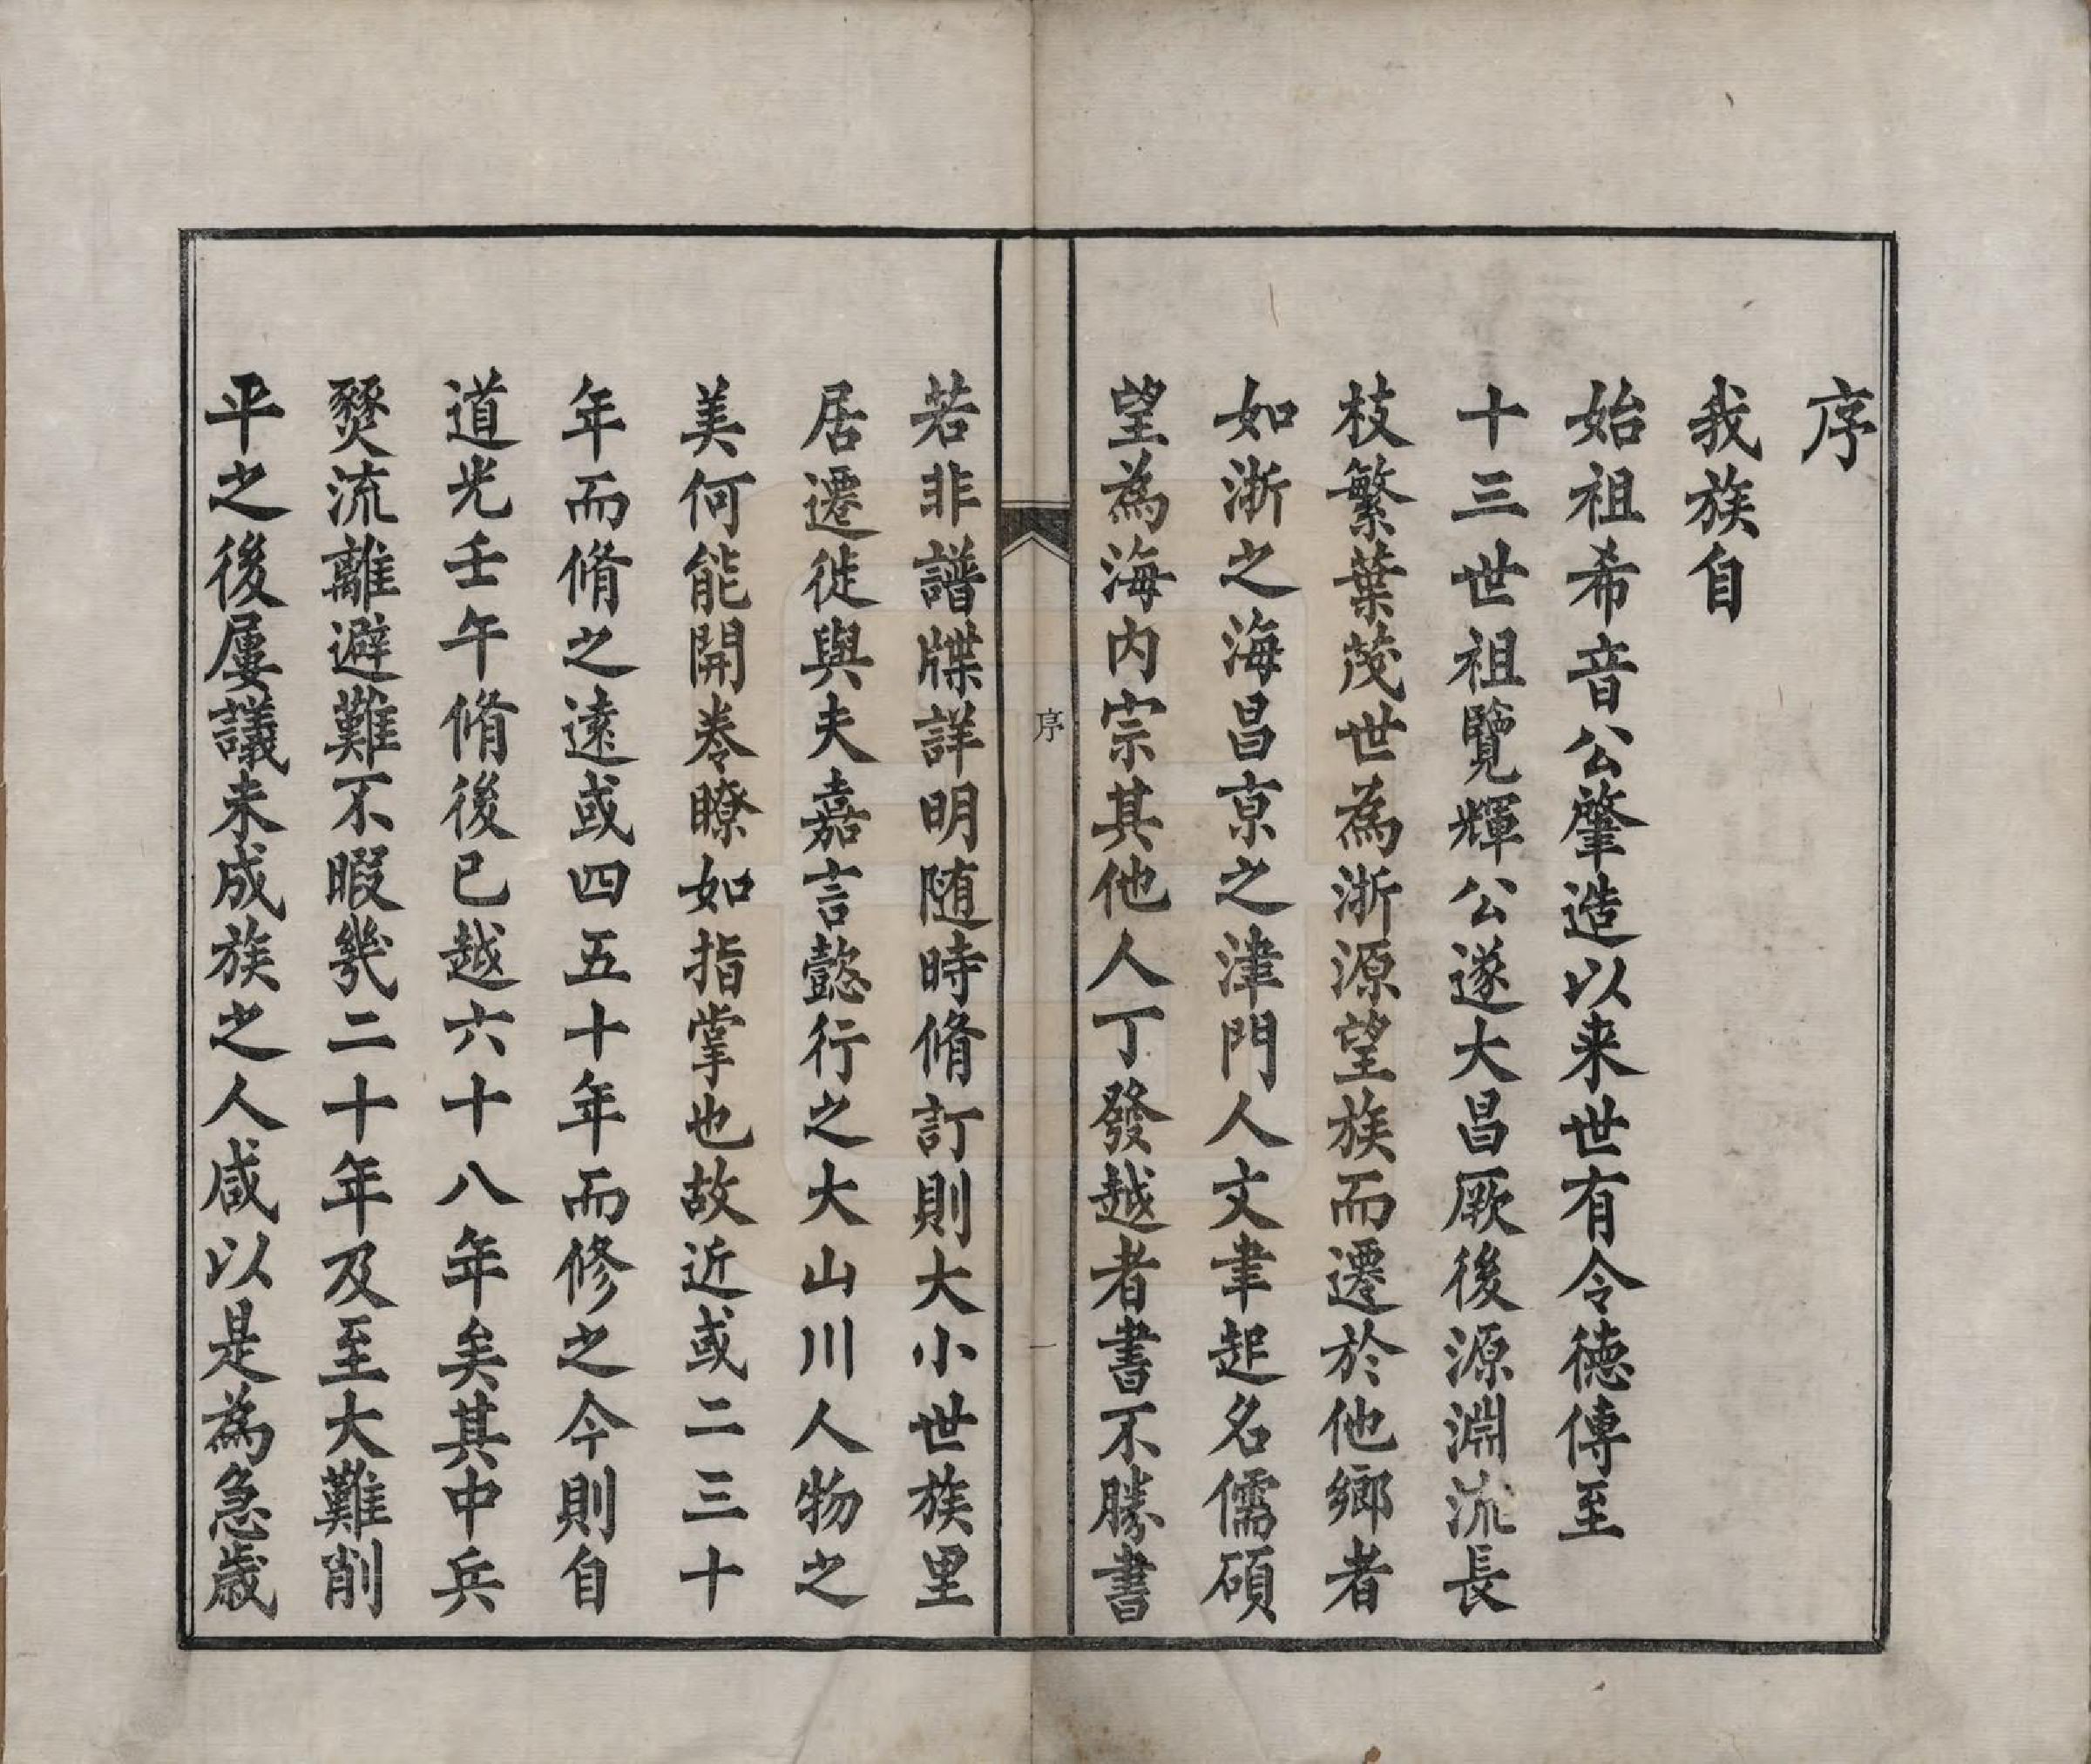 序
我族自
始祖希音公肇造以来世有令徳傳至
十三世祖覽輝公遂大昌厥後源淵流長
枝繁葉茂世為浙源望族而遷於他鄉者
如浙之海昌京之津門人文聿起名儒碩
望為海内宗其他人丁發越者書不勝書
序
一
若非譜牒詳明随時脩訂則大小世族里
居遷徙與夫嘉言懿行之大山川人物之
美何能開巻瞭如指掌也故近或二三十
年而脩之遠或四五十年而修之今則自
道光壬午脩後已越六十八年矣其中兵
燹流離避難不暇幾二十年及至大難削
平之後屢議未成族之人咸以是為急歳